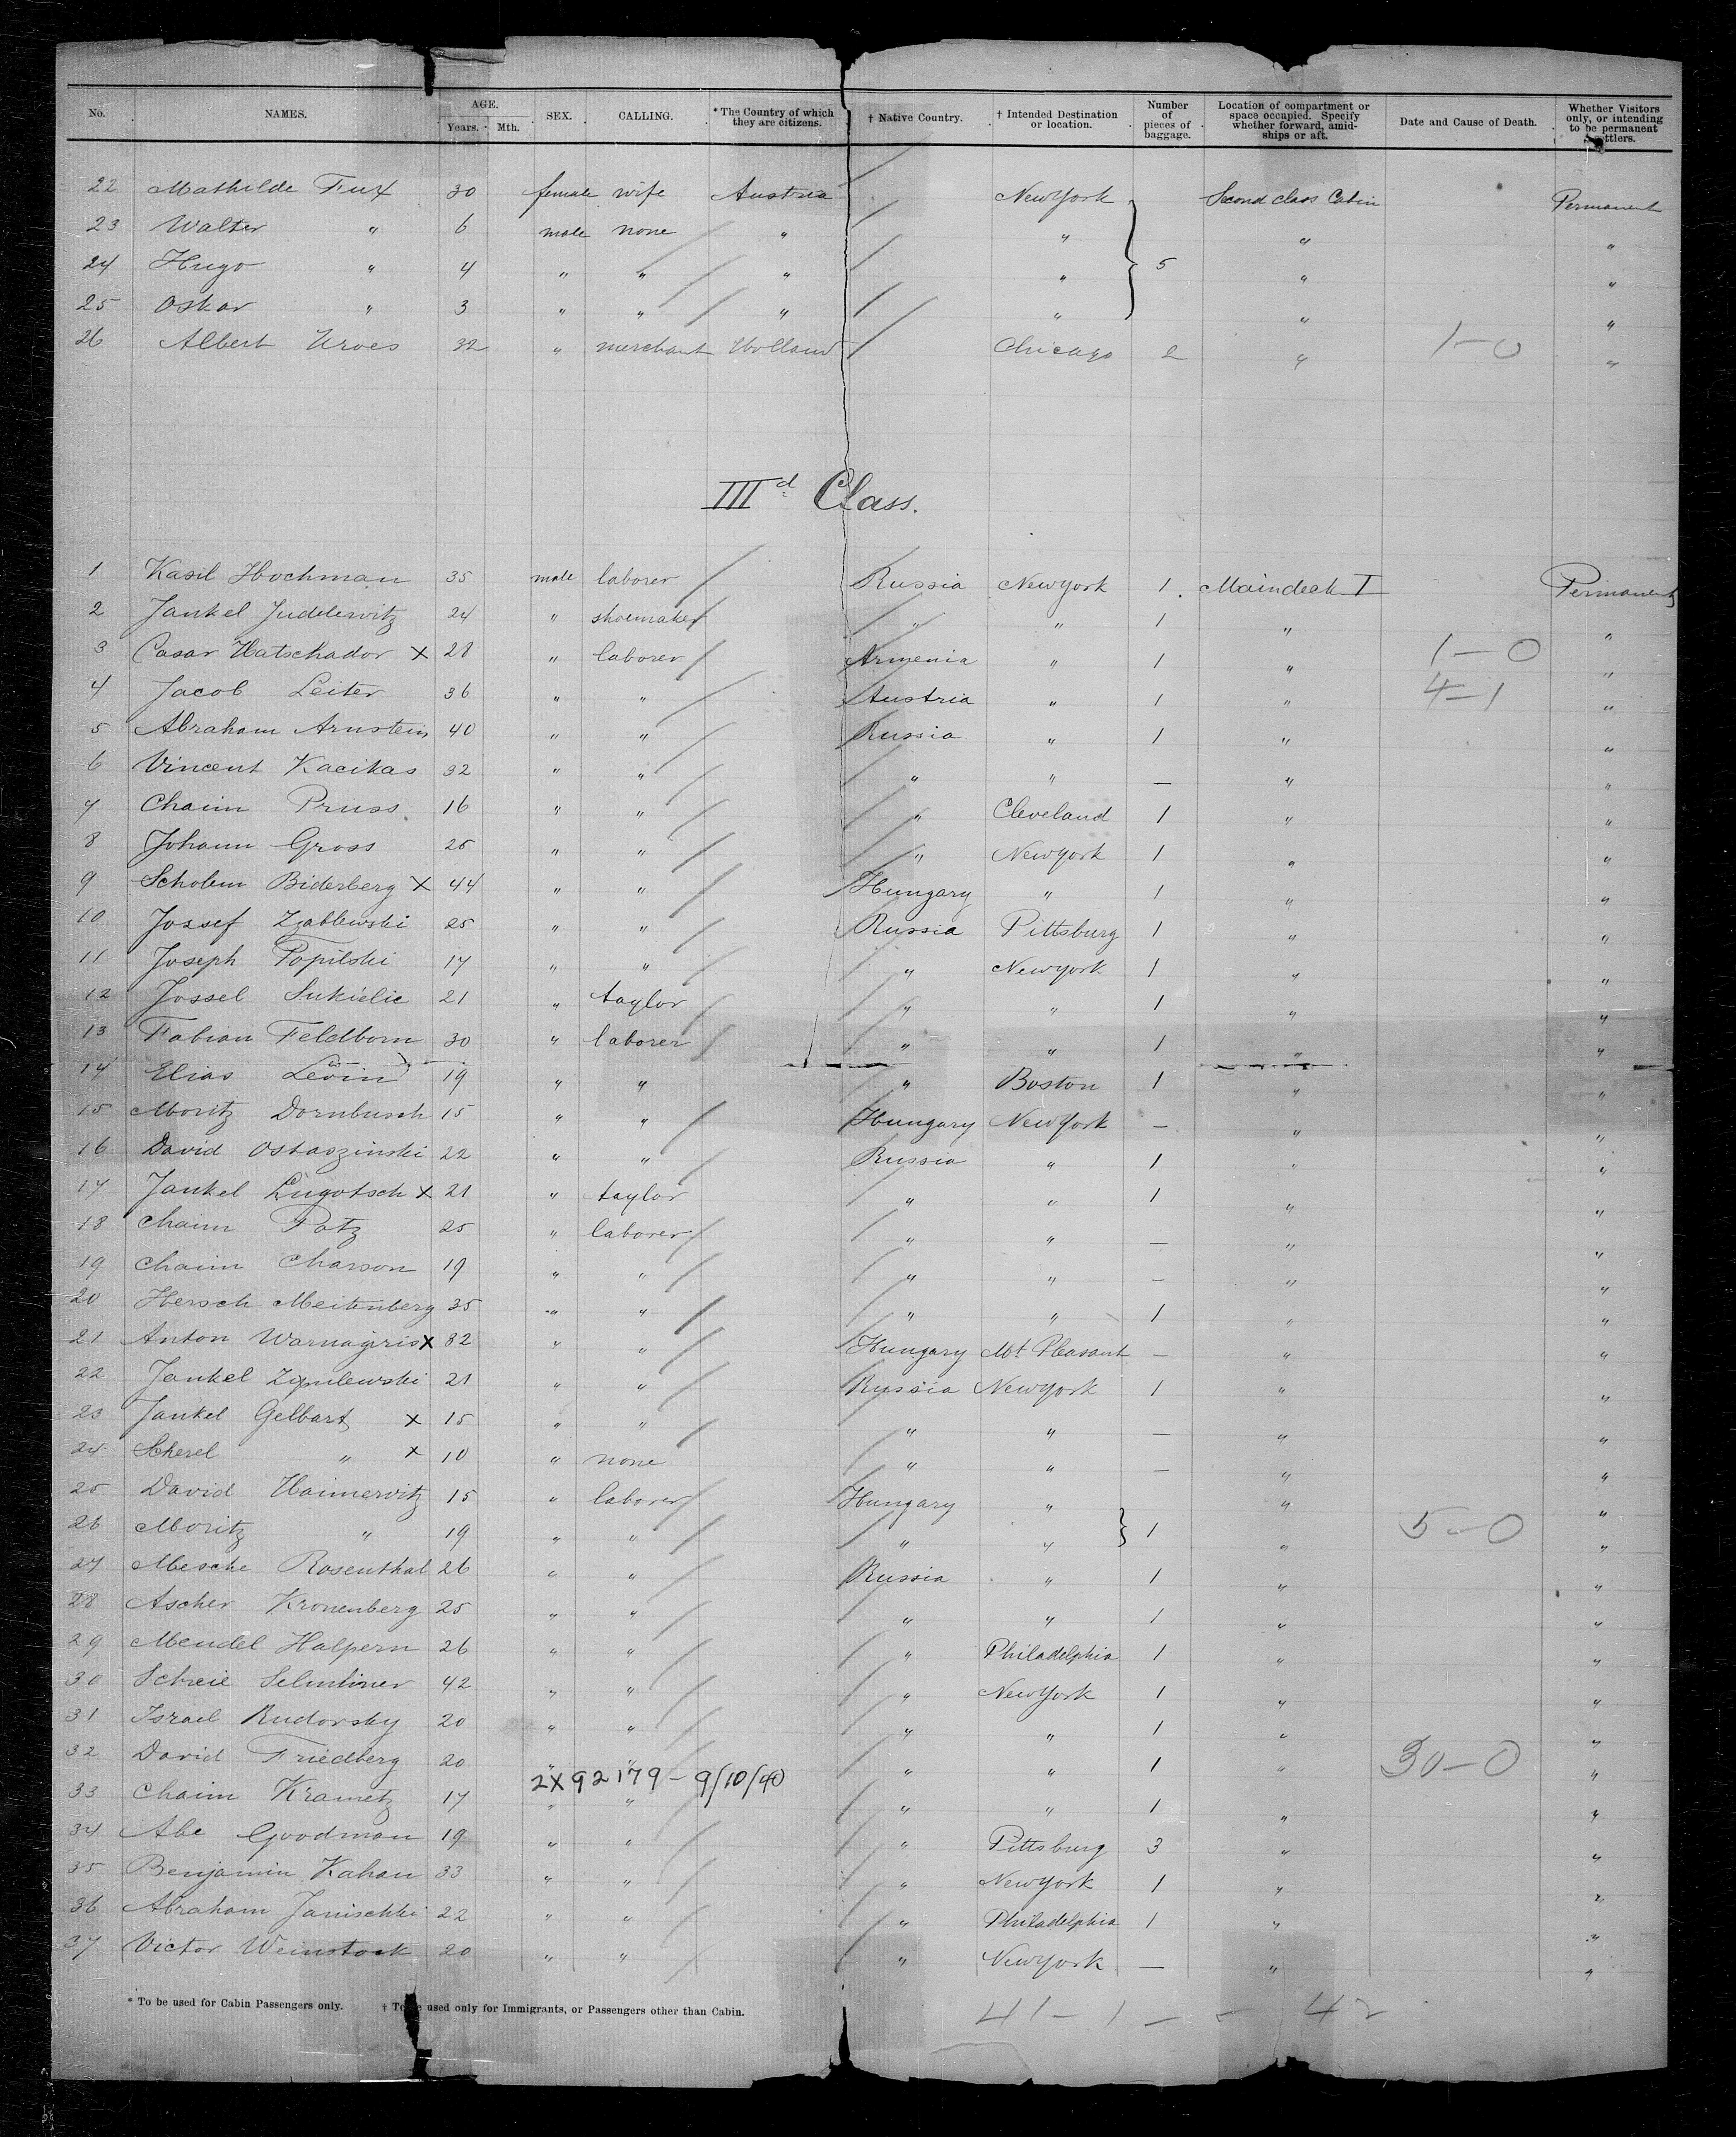 No. NAMES. AGE. Years. Mth. SEX. CALLING. * The Country of which they are citizens. † Native Country. † Intended Destination or location. Number of pieces of baggage. Location of compartment or space occupied. Specify whether forward, amidships or aft. Date and Cause of Death. Whether Visitors only, or intending to be permanent settlers.
22 Mathilde Fux 30 female wife Austria New York Second class Cabin Permanent
23 Walter " 6 male none " " " "
24 Hugo " 4 " " " " 5 " "
25 Oskar " 3 " " " " " "
26 Albert Kroes 32 " merchant Holland Chicago 2 " 1-0 "
IIId Class.
1 Kasil Hochman 35 male laborer Russia New York 1. Maindeck I Permanent
2 Jankel Judelewitz 24 " shoemaker " " 1 " "
3 Casar Hatschador x 28 " laborer Armenia " 1 " 1-0 "
4 Jacob Leiter 36 " " Austria " 1 " 4-1 "
5 Abraham Arnstein 40 " " Russia " 1 " "
6 Vincent Kacikas 32 " " " " — " "
7 Chaim Pruss 16 " " " Cleveland 1 " "
8 Johann Gross 25 " " " New York 1 " "
9 Scholem Biderberg x 44 " " Hungary " 1 " "
10 Jossef Zzablewski 25 " " Russia Pittsburg 1 " "
11 Joseph Popilski 17 " " " New York 1 " "
12 Jossel Sukielic 21 " taylor " " 1 " "
13 Fabian Feldborn 30 " laborer " " 1 " "
14 Elias Levin 19 " " " Boston 1 " "
15 Moritz Dornbusch 15 " " Hungary New York — " "
16 David Ostaszinski 22 " " Russia " 1 " "
17 Jankel Lugotsch x 21 " taylor " " 1 " "
18 Chaim Potz 25 " laborer " " — " "
19 Chaim Charson 19 " " " " — " "
20 Hersch Meitenberg 35 " " " " 1 " "
21 Anton Warnagiris x 32 " " Hungary Mt Pleasant — " "
22 Jankel Zipilewski 21 " " Russia New York 1 " "
23 Jankel Gelbart x 15 " " " " — " "
24 Scherel " x 10 " none " " — " "
25 David Haimerwitz 15 " laborer Hungary " " "
26 Moritz " 19 " " " " 1 " 5-0 "
27 Mesche Rosenthal 26 " " Russia " 1 " "
28 Ascher Kronenberg 25 " " " " 1 " "
29 Mendel Halpern 26 " " " Philadelphia 1 " "
30 Schreie 42 " " " New York 1 " "
31 Israel Rudorsky 20 " " " " 1 " "
32 David Friedberg 20 " " " " 1 " 30-0 "
2X92179 - 9/10/40
33 Chaim Krametz 17 " " " " 1 " "
34 Abe Goodman 19 " " " Pittsburg 3 " "
35 Benjamin Kahan 33 " " " New York 1 " "
36 Abraham Janischki 22 " " " Philadelphia 1 " "
37 Victor Weinstock 20 " " " New York — " "
* To be used for Cabin Passengers only. † To be used only for Immigrants, or Passengers other than Cabin.
41-1 — - 42